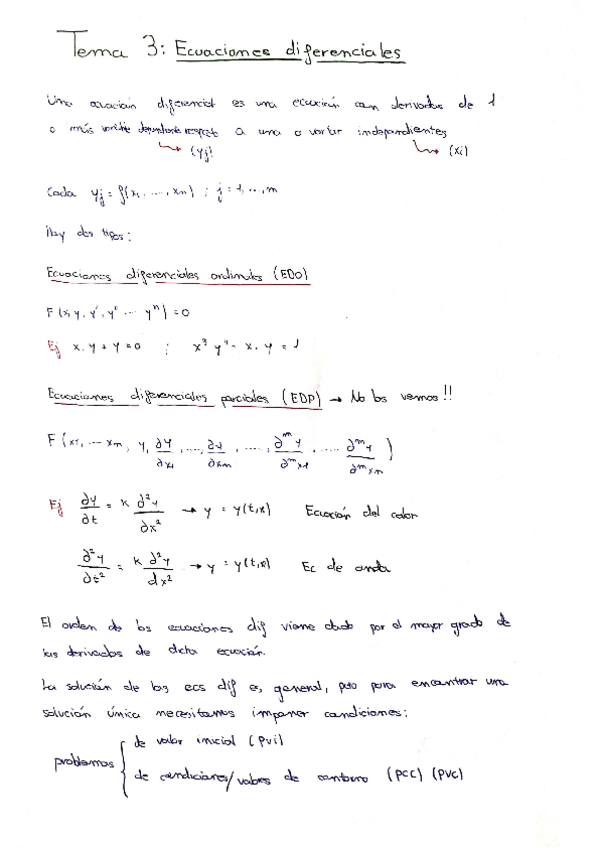 Tema 3: Ecuaciones diferenciales
Una ecuación diferencial es una ecuación con derivadas de 1
o más variable dependiente respecto a una o variar independientes
↳ (yj) ↳ (xi)
Cada yj = f(x1, ..., xn) ; j = 1, ..., m
Hay dos tipos:
Ecuaciones diferenciales ordinales (EDO)
F(x, y, y', y'' ... yⁿ) = 0
Ej x · y + y = 0 ; x³ y'' - x · y = 1
Ecuaciones diferenciales parciales (EDP) → No los vemos!!
F(x1, ... xm, y, ∂y/∂x1, ..., ∂y/∂xm, ..., ∂ᵐy/∂ᵐx1, ..... ∂ᵐy/∂ᵐxm)
Ej ∂y/∂t = K ∂²y/∂x² → y = y(t,x) Ecuación del calor
∂²y/∂t² = K ∂²y/dx² → y = y(t,x) Ec de onda
El orden de las ecuaciones dif viene dado por el mayor grado de
las derivadas de dicha ecuación.
La solución de las ecs dif es, general, pero para encontrar una
solución única necesitamos imponer condiciones:
problemas { de valor inicial (PVi)
de condiciones/valores de contorno (PCC) (PVC)